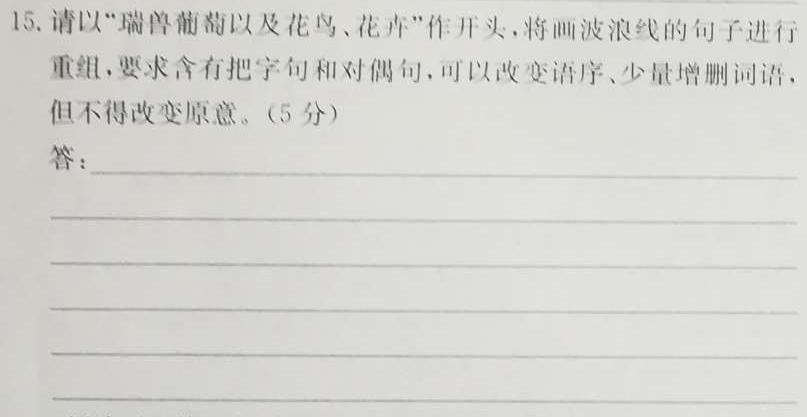 15. 请以“瑞兽葡萄以及花鸟、花卉”作开头，将画波浪线的句子进行
重组，要求含有把字句和对偶句，可以改变语序、少量增删词语，
但不得改变原意。（5 分）
答：